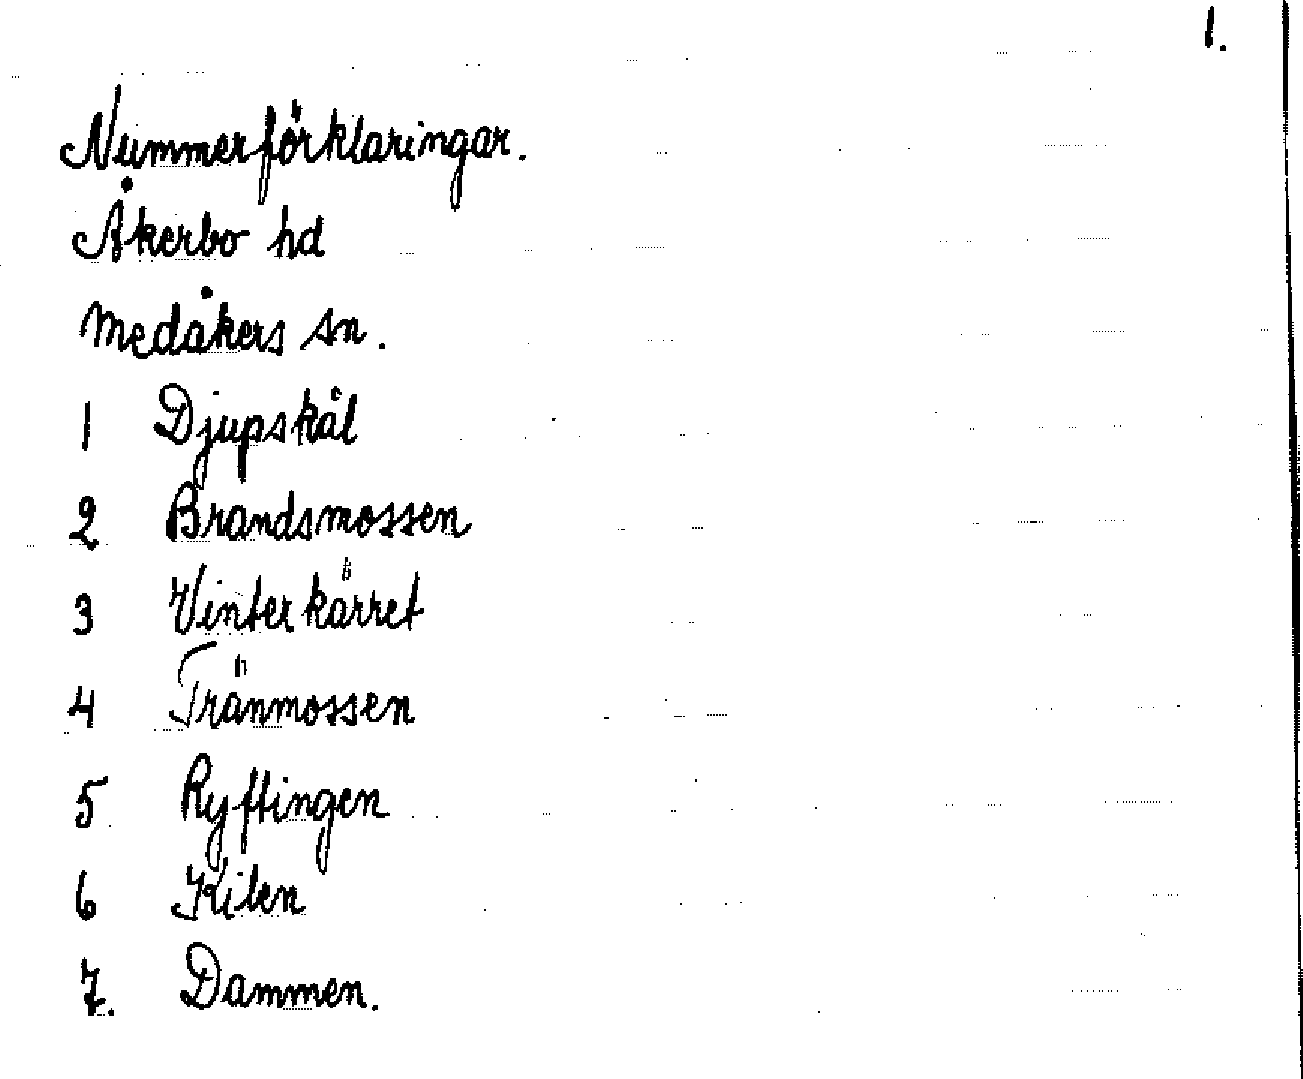 1.
Nummerförklaringar.
Åkerbo hd
Medåkers sn.
1 Djupskål
2 Brandsmossen
3 Vinterkärret
4 Tränmossen
5 Ryftingen
6 Kilen
7. Dammen.